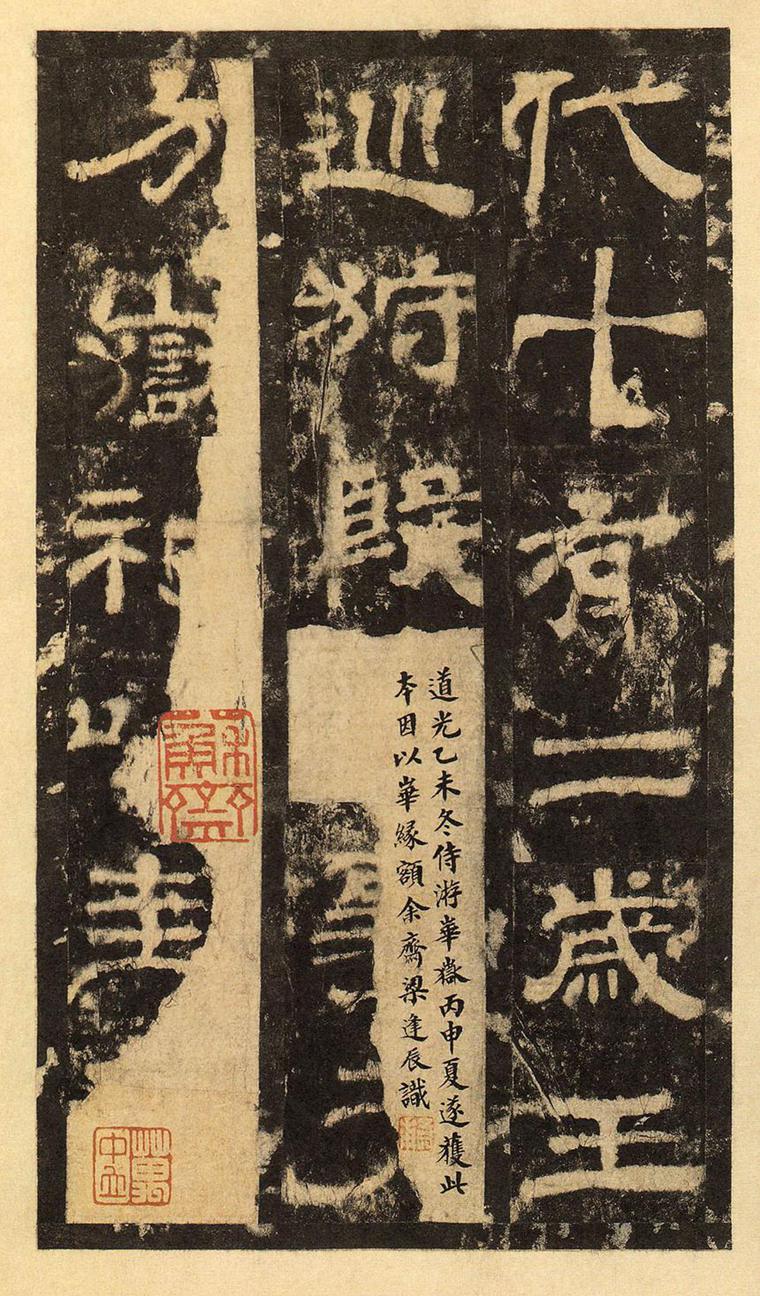 代十有二歲王
巡狩殷
事于
道光乙未冬侍游華嶽丙申夏遂獲此
本因以華緣額余齋梁逢辰識
方嶽祀以圭
蘇齋